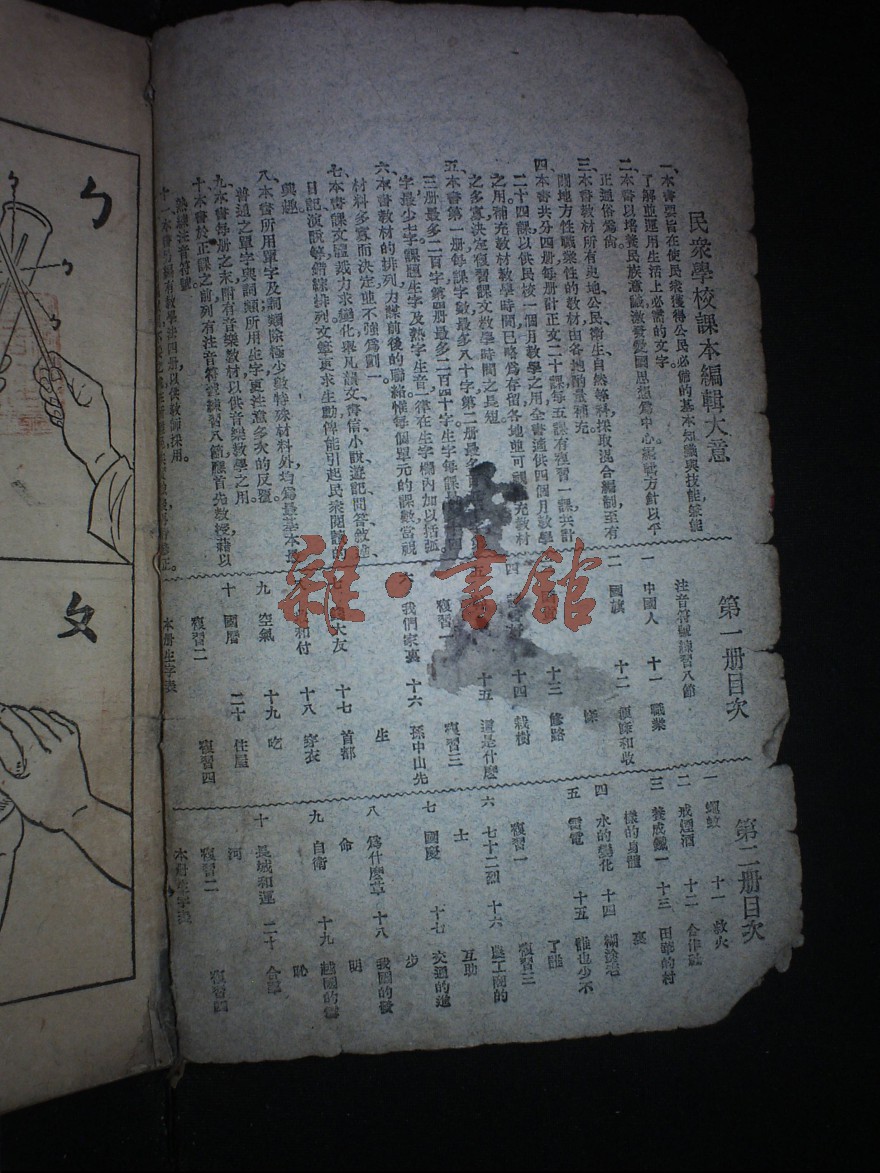 民衆學校課本編輯大意
一、本書要旨在使民衆獲得公民必備的基本知識與技能兼能
了解並運用生活上必需的文字。
二、本書以培養民族意識激發愛國思想爲中心編輯方針以平
正通俗爲尚
三、本書教材所有史地公民衛生自然等科採取混合編制至有
關地方性職業性的教材由各地酌量補充
四、本書共分四册每册計正文二十課每五課有複習一課共計
二十四課以供民校一個月教學之用全書適供四個月教學
之用補充教材教學時間已略爲存留各地並可視補充教材
之多寡決定複習課文教學時間之長短
五、本書第一册每課字數最多八十字第二册最多
三册最多二百字第四册最多二百四十字生字每課最
字最少七字課題生字及熱字生音一律在生字欄內加以括弧
六、本書教材的排列力謀前後的聯絡惟每個單元的課數當視
材料多寡而決定並不強爲劃一
七、本書課文體裁力求變化舉凡韻文書信小說遊記問答敘述
日記演說等錯綜排列文筆更求生動俾能引起民衆閱讀的
興趣。
八、本書所用單字及詞類除極少數特殊材料外均爲最基本最
普通之單字與詞類所用生字更注意多次的反覆
九、本書每册之末附有音樂教材以供音樂教學之用
十、本書於正課之前列有注音符號練習八節應首先教授藉以
熟練注音符號
十一、本書另編有教學法四册以供教師採用。
第一册目次
注音符號練習八節
一 中國人 十一 職業
二 國旗 十二 便條和收
條
十三 修路
四 十四 栽樹
五 十五 這是什麼
複習一 複習三
六 我們家裏 十六 孫中山先
生
大友 十七 首都
和付 十八 穿衣
九 空氣 十九 吃
十 國曆 二十 住屋
複習二 複習四
本册生字表
第二册目次
一 蠅蚊 十一 救火
二 戒煙酒 十二 合作社
三 養成鐵一 十三 田單的村
樣的身體 裏
四 水的變化 十四 糊塗老
五 雷電 十五 誰也少不
了誰
複習一 複習三
六 七十二烈 十六 農工商的
士 互助
七 國慶 十七 交通的進
步
八 爲什麼革 十八 我國的發
命 明
九 自衛 十九 越國的雪
恥
十 長城和運 二十 合羣
河
複習二 複習四
本册生字表
ㄅ
ㄆ
雜·書館